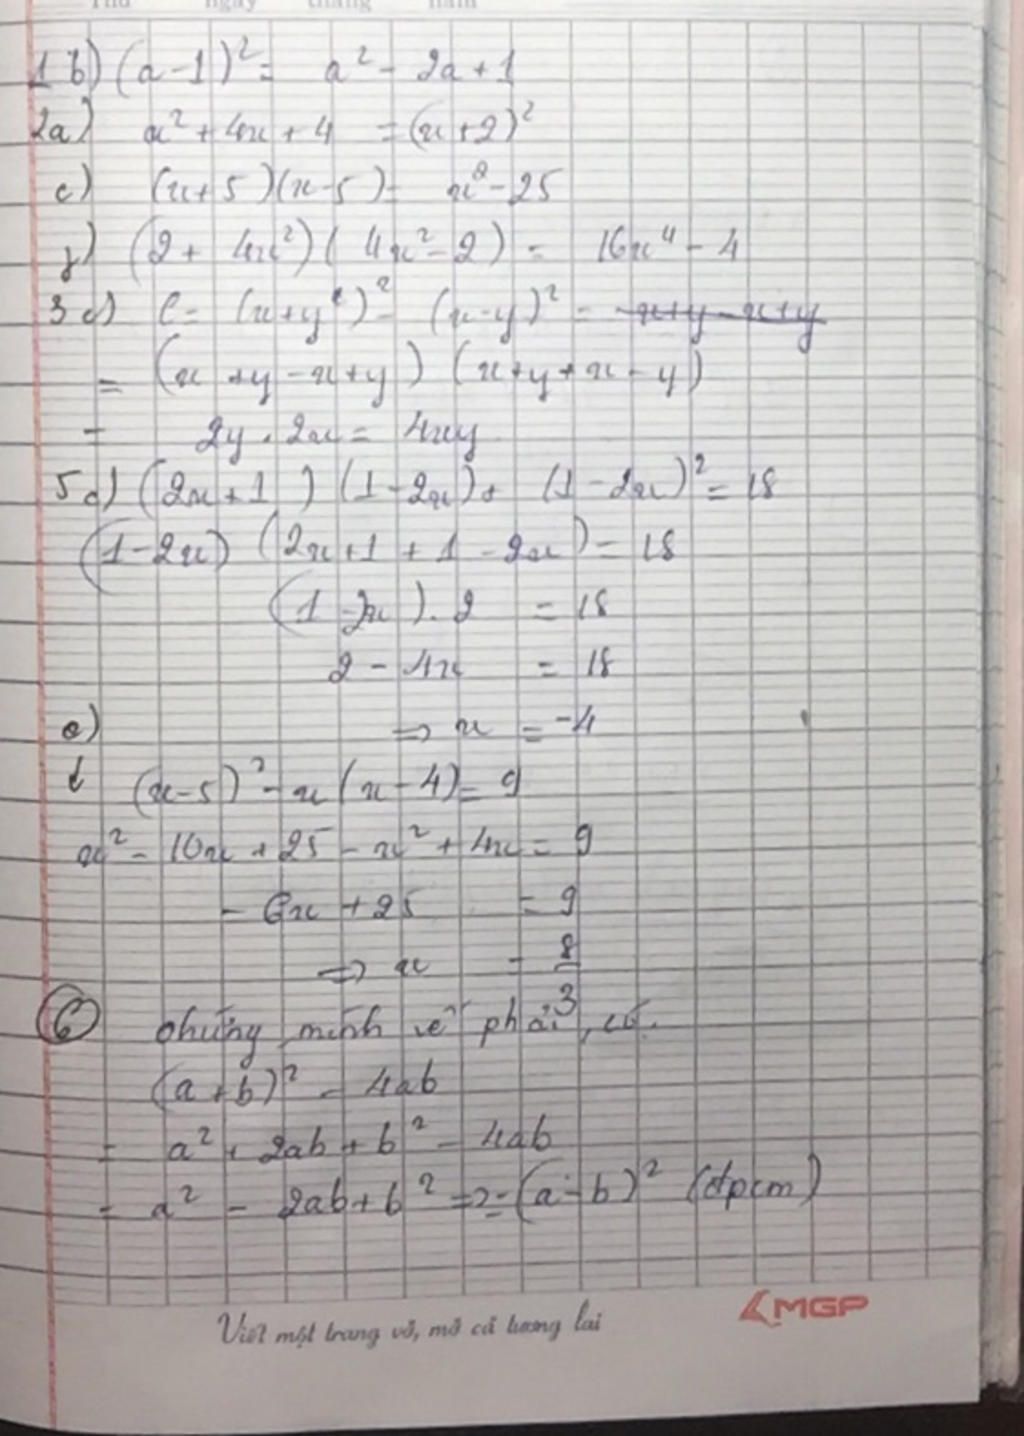 Thứ ngày tháng năm
1 b) (a-1)² = a² - 2a + 1
2a) x² + 4x + 4 = (x+2)²
c) (x+5)(x-5) = x² - 25
g) (2 + 4x²)(4x² - 2) = 16x⁴ - 4
3 c) C = (x+y)² - (x-y)² = x+y - x+y
= (x + y - x + y) (x + y + x - y)
= 2y . 2x = 4xy
5 d) (2x+1) (1-2x) + (1-2x)² = 18
(1-2x) (2x+1 + 1 - 2x) = 18
(1 - 2x) . 2 = 18
2 - 4x = 18
e) ⇒ x = -4
(x-5)² - x(x-4) = 9
x² - 10x + 25 - x² + 4x = 9
- 6x + 25 = 9
⇒ x = 8/3
6 chứng minh vế phải, có.
(a+b)² - 4ab
= a² + 2ab + b² - 4ab
= a² - 2ab + b² = (a-b)² (đpcm)
Viết một trang vở, mở cả tương lai
MGP